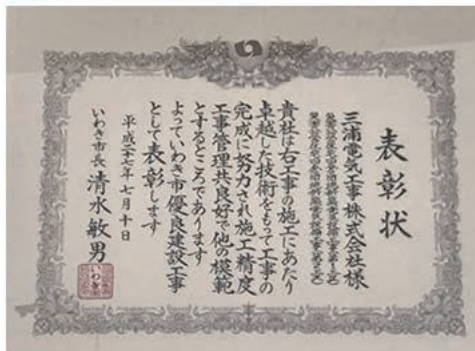 表彰状
三浦電気工事株式会社様
貴社は右工事の施工にあたり
卓越した技術をもって工事の
完成に努力され施工精度
工事管理共良好で他の模範
とするところであります
よっていわき市優良建設工事
として表彰します
平成二十七年七月十日
いわき市長 清水敏男